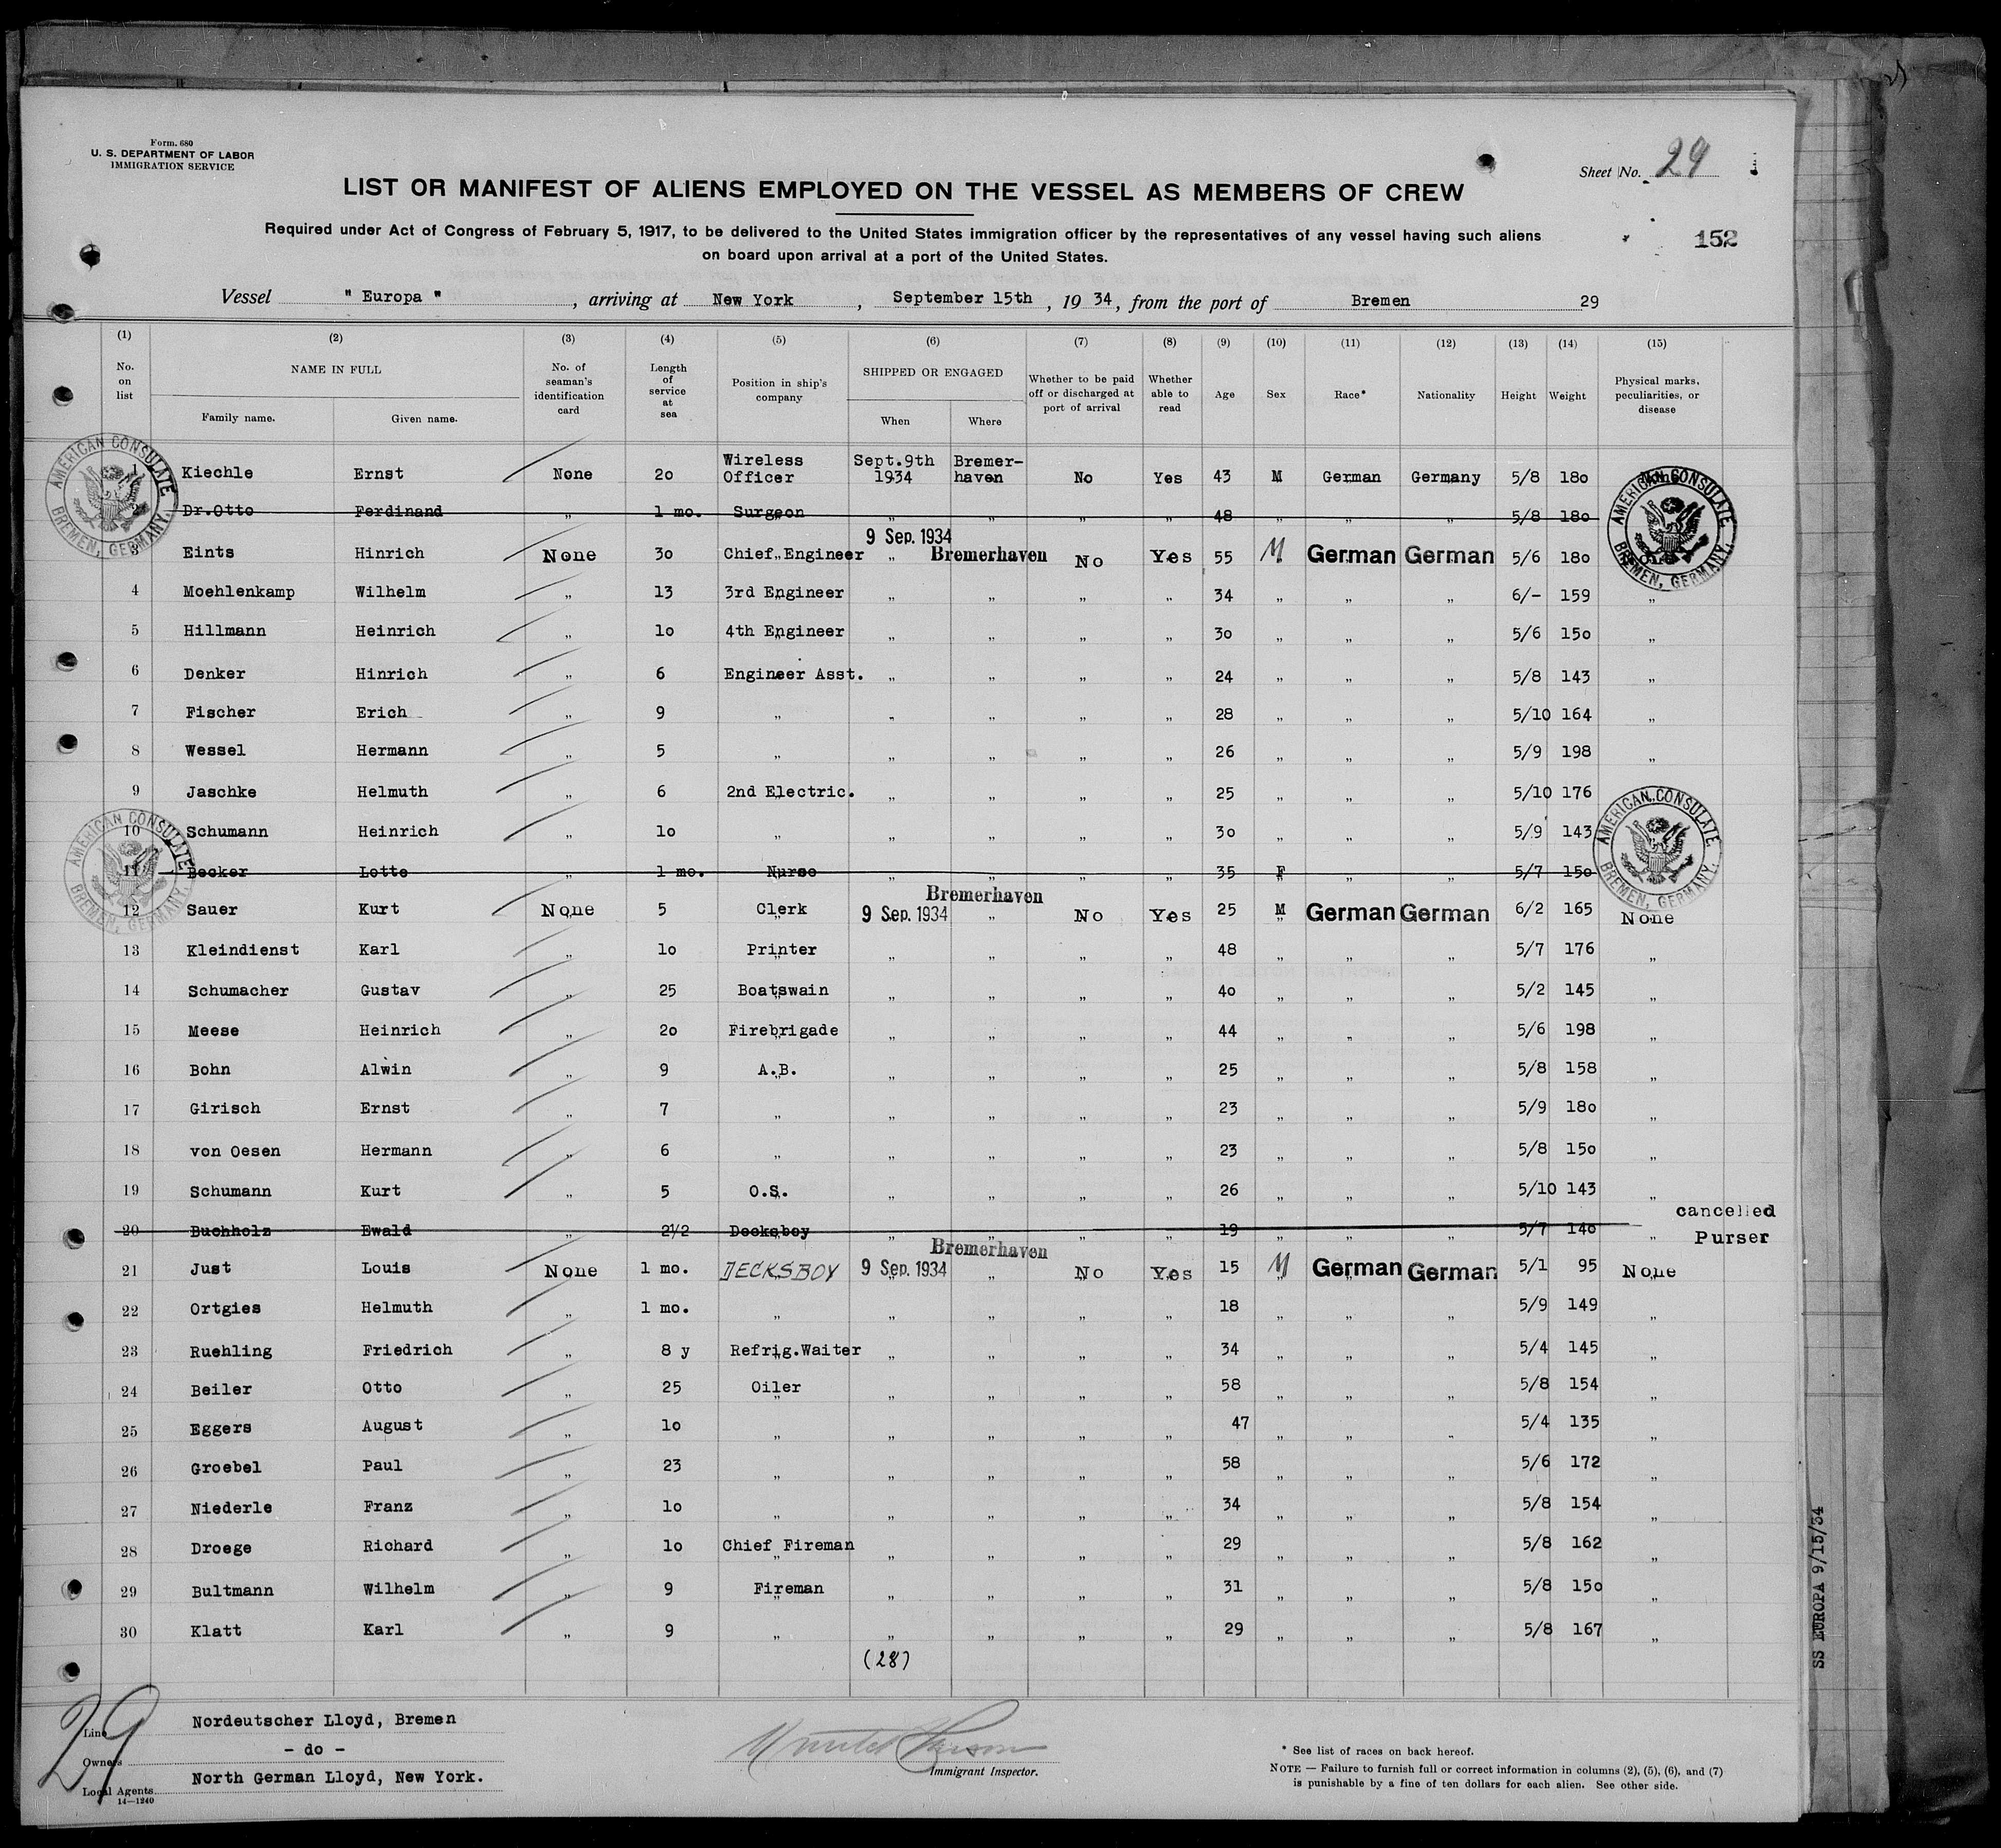 Form. 680
U. S. DEPARTMENT OF LABOR
IMMIGRATION SERVICE
Sheet No. 29
LIST OR MANIFEST OF ALIENS EMPLOYED ON THE VESSEL AS MEMBERS OF CREW
Required under Act of Congress of February 5, 1917, to be delivered to the United States immigration officer by the representatives of any vessel having such aliens
on board upon arrival at a port of the United States.
152
Vessel " Europa " , arriving at New York , September 15th , 19 34, from the port of Bremen 29
(1) (2) (3) (4) (5) (6) (7) (8) (9) (10) (11) (12) (13) (14) (15)
No. on list NAME IN FULL Family name. Given name. No. of seaman's identification card Length of service at sea Position in ship's company SHIPPED OR ENGAGED When Where Whether to be paid off or discharged at port of arrival Whether able to read Age Sex Race* Nationality Height Weight Physical marks, peculiarities, or disease
AMERICAN CONSULATE BREMEN, GERMANY.
AMERICAN CONSULATE BREMEN, GERMANY.
1 Kiechle Ernst None 20 Wireless Officer Sept.9th 1934 Bremer-haven No Yes 43 M German Germany 5/8 180
2 Dr.Otto Ferdinand „ 1 mo. Surgeon „ „ „ „ 48 „ „ „ 5/8 180
3 Eints Hinrich None 30 Chief Engineer 9 Sep. 1934 „ Bremerhaven No Yes 55 M German German 5/6 180
4 Moehlenkamp Wilhelm „ 13 3rd Engineer „ „ „ „ 34 „ „ „ 6/- 159 „
5 Hillmann Heinrich „ 10 4th Engineer „ „ „ „ 30 „ „ „ 5/6 150 „
6 Denker Hinrich „ 6 Engineer Asst. „ „ „ „ 24 „ „ „ 5/8 143 „
7 Fischer Erich „ 9 „ „ „ „ „ 28 „ „ „ 5/10 164 „
8 Wessel Hermann „ 5 „ „ „ „ „ 26 „ „ „ 5/9 198 „
9 Jaschke Helmuth „ 6 2nd Electric. „ „ „ „ 25 „ „ „ 5/10 176
10 Schumann Heinrich „ 10 „ „ „ „ „ 30 „ „ „ 5/9 143
AMERICAN CONSULATE BREMEN, GERMANY.
AMERICAN CONSULATE BREMEN, GERMANY.
11 Becker Lotte „ 1 mo. Nurse „ „ „ „ 35 F „ „ 5/7 150
12 Sauer Kurt None 5 Clerk 9 Sep. 1934 Bremerhaven „ No Yes 25 M German German 6/2 165 None
13 Kleindienst Karl „ 10 Printer „ „ „ „ 48 „ „ „ 5/7 176 „
14 Schumacher Gustav „ 25 Boatswain „ „ „ „ 40 „ „ „ 5/2 145 „
15 Meese Heinrich „ 20 Firebrigade „ „ „ „ 44 „ „ „ 5/6 198 „
16 Bohn Alwin „ 9 A.B. „ „ „ „ 25 „ „ „ 5/8 158 „
17 Girisch Ernst „ 7 „ „ „ „ „ 23 „ „ „ 5/9 180 „
18 von Oesen Hermann „ 6 „ „ „ „ „ 23 „ „ „ 5/8 150 „
19 Schumann Kurt „ 5 O.S. „ „ „ „ 26 „ „ „ 5/10 143 „
20 Buchholz Ewald „ 2½ Decksboy „ „ „ „ 19 „ „ „ 5/7 140 „ cancelled Purser
21 Just Louis None 1 mo. DECKSBOY 9 Sep. 1934 Bremerhaven „ No Yes 15 M German German 5/1 95 None
22 Ortgies Helmuth „ 1 mo. „ „ „ „ „ 18 „ „ „ 5/9 149 „
23 Ruehling Friedrich „ 8 y Refrig.Waiter „ „ „ „ 34 „ „ „ 5/4 145 „
24 Beiler Otto „ 25 Oiler „ „ „ „ 58 „ „ „ 5/8 154 „
25 Eggers August „ 10 „ „ „ „ „ 47 „ „ „ 5/4 135 „
26 Groebel Paul „ 23 „ „ „ „ „ 58 „ „ „ 5/6 172 „
27 Niederle Franz „ 10 „ „ „ „ „ 34 „ „ „ 5/8 154 „
28 Droege Richard „ 10 Chief Fireman „ „ „ „ 29 „ „ „ 5/8 162 „
29 Bultmann Wilhelm „ 9 Fireman „ „ „ „ 31 „ „ „ 5/8 150 „
30 Klatt Karl „ 9 „ „ „ „ „ 29 „ „ „ 5/8 167 „
(28)
29
Line Nordeutscher Lloyd, Bremen
Owners - do -
Local Agents North German Lloyd, New York.
14—1240
Immigrant Inspector.
* See list of races on back hereof.
NOTE — Failure to furnish full or correct information in columns (2), (5), (6), and (7)
is punishable by a fine of ten dollars for each alien. See other side.
SS EUROPA 9/15/34